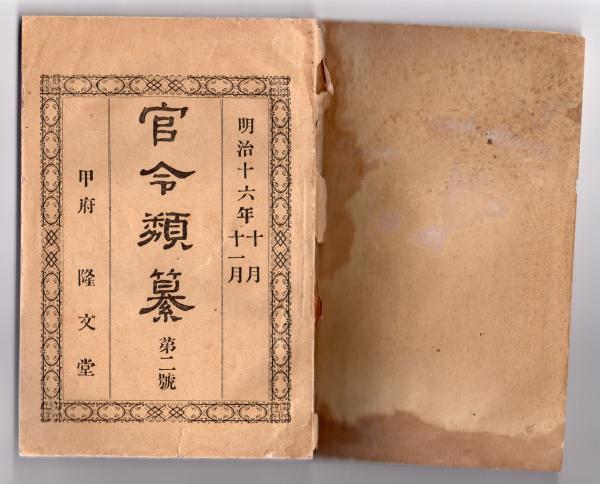 明治十六年十月十一月
官令類纂 第二號
甲府 隆文堂